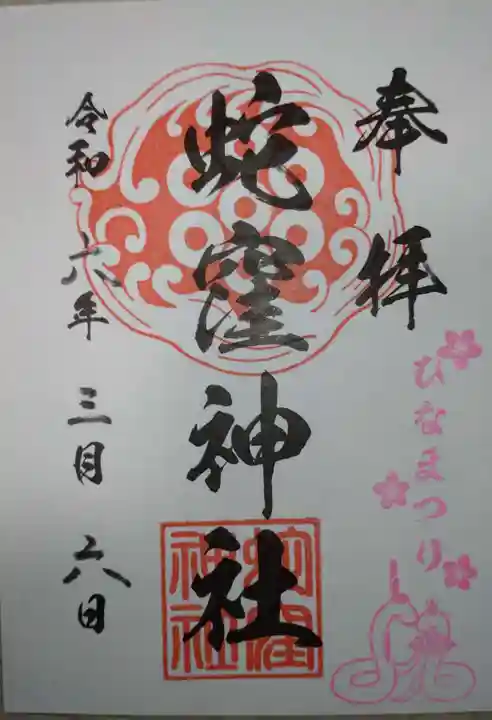 奉拝
ひなまつり
蛇窪神社
蛇窪
神社
令和六年三月六日